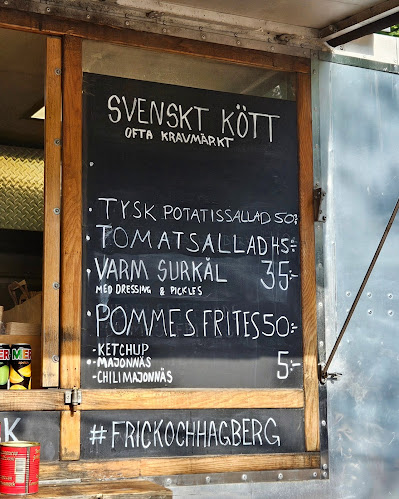 SVENSKT KÖTT
OFTA KRAVMÄRKT
TYSK POTATISSALLAD 50:-
TOMATSALLAD 45:-
VARM SURKÅL 35:-
MED DRESSING & PICKLES
POMMES FRITES 50:-
-KETCHUP
-MAJONNÄS 5:-
-CHILIMAJONNÄS
MER MER
K
#FRICKOCHHAGBERG